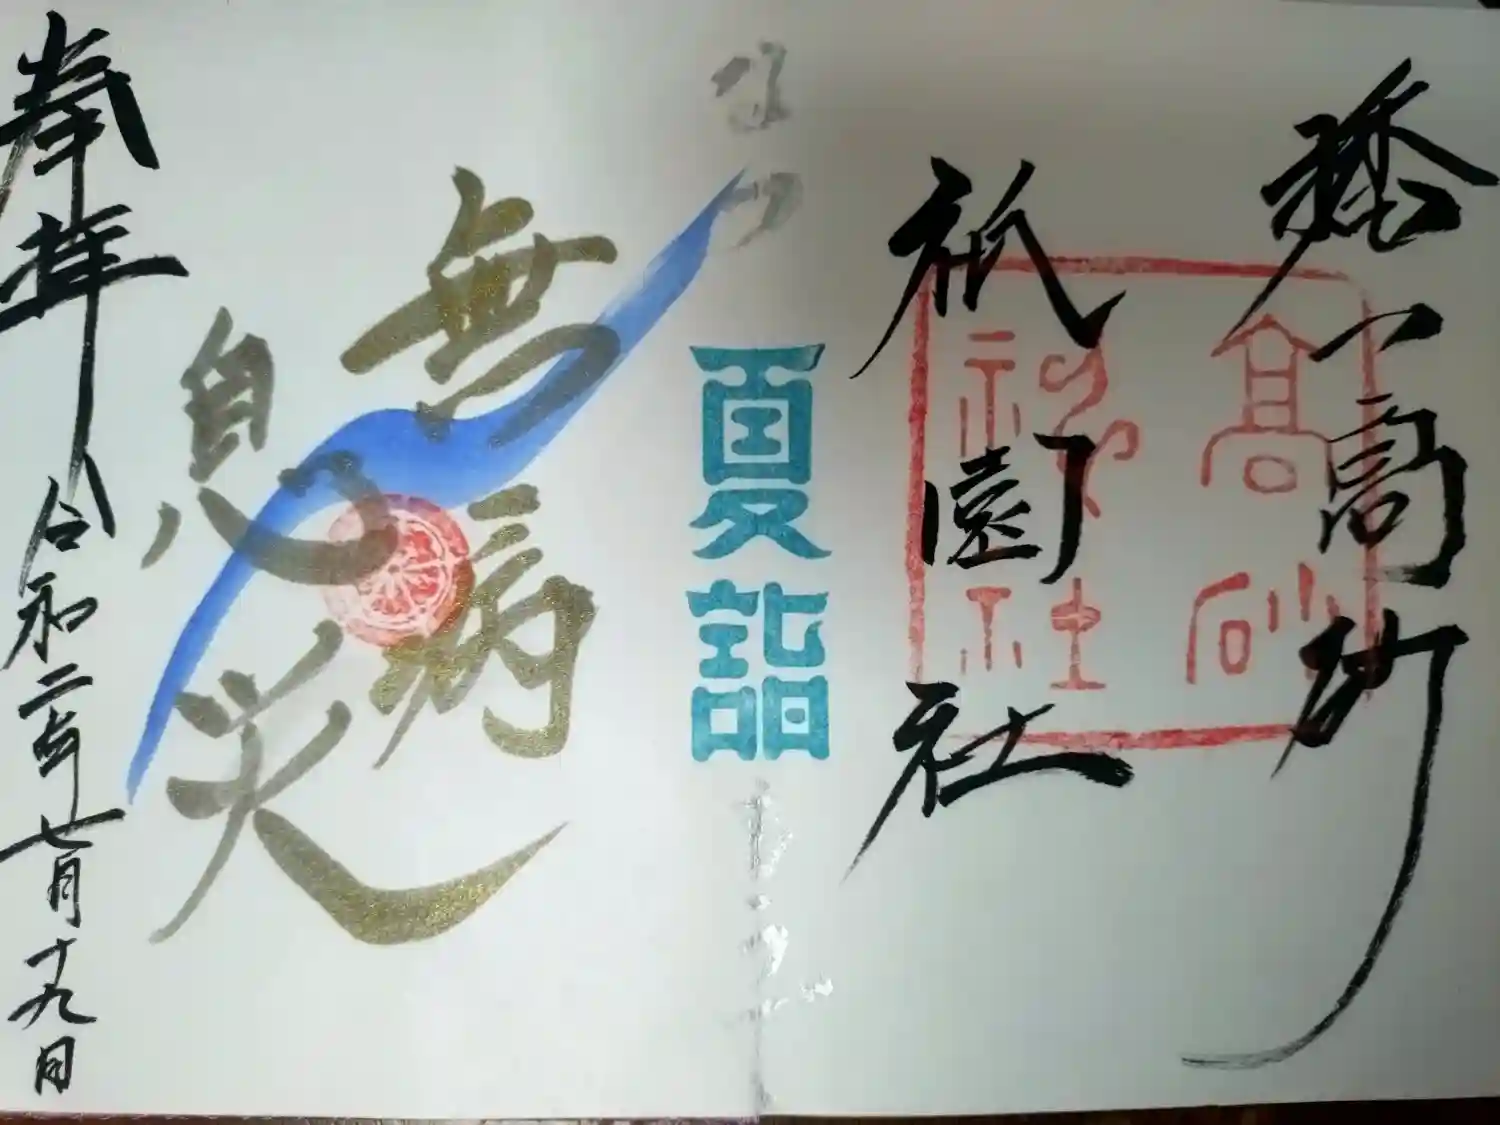 高砂
高砂
神社
祇園社
なつ
夏詣
無病
息災
奉拝
令和二年七月十九日